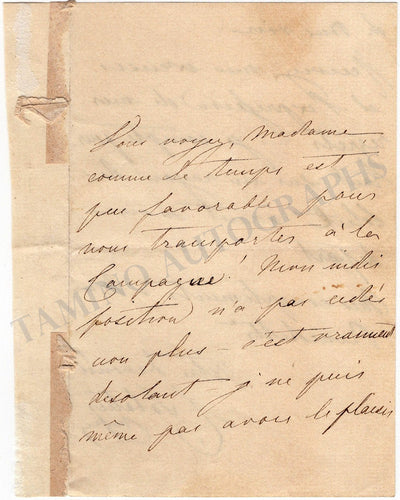 Vous voyez, Madame
comme le temps est
peu favorable pour
nous transporter à la
Campagne! Mon indis
position n'a pas cédé
non plus - c'est vraiment
désolant je ne puis
même pas avoir le plaisir
TAMINO AUTOGRAPHS